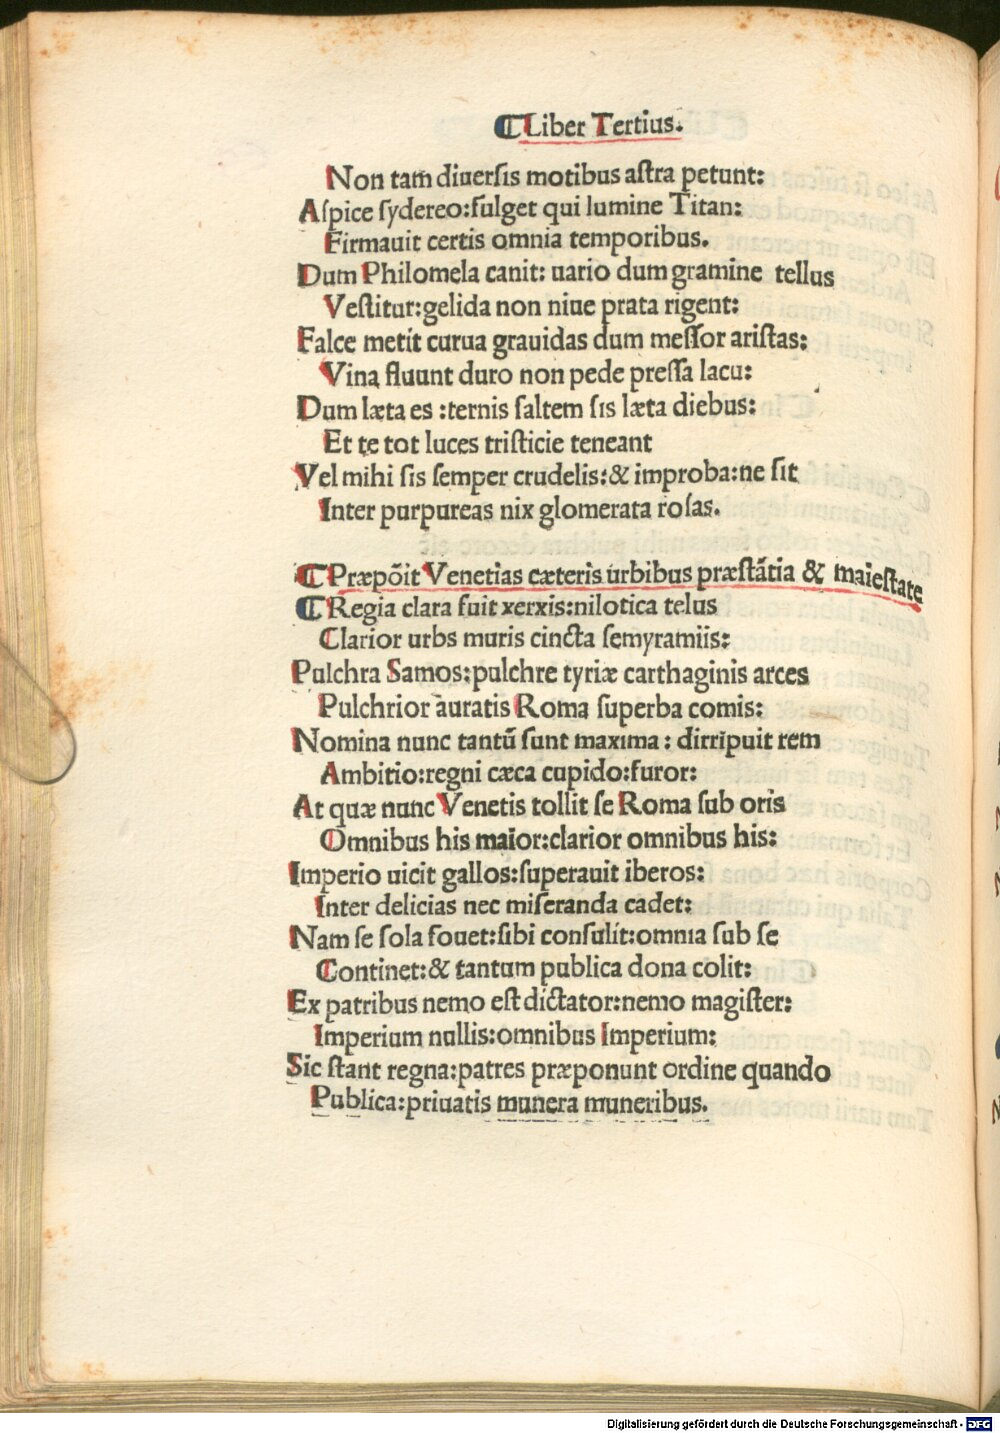 ⸿Liber Tertius.
Non tam̃ diuerſis motibus aſtra petunt:
Aſpice ſydereo:fulget qui lumine Titan:
Firmauit certis omnia temporibus.
Dum Philomela canit: uario dum gramine tellus
Veſtitur:gelida non niue prata rigent:
Falce metit curua grauidas dum meſſor ariſtas:
Vina fluunt duro non pede preſſa lacu:
Dum læta es :ternis ſaltem ſis læta diebus:
Et te tot luces triſticie teneant
Vel mihi ſis ſemper crudelis:& improba:ne ſit
Inter purpureas nix glomerata roſas.
⸿Præpõit Venetias cæteris urbibus præſtãtia & maieſtate
⸿Regia clara fuit xerxis:nilotica telus
Clarior urbs muris cincta ſemyramiis:
Pulchra Samos:pulchre tyriæ carthaginis arces
Pulchrior auratis Roma ſuperba comis:
Nomina nunc tantũ ſunt maxima : dirripuit rem
Ambitio:regni cæca cupido:furor:
At quæ nunc Venetis tollit ſe Roma ſub oris
Omnibus his maior:clarior omnibus his:
Imperio uicit gallos:ſuperauit iberos:
Inter delicias nec miſeranda cadet:
Nam ſe ſola fouet:ſibi conſulit:omnia ſub ſe
Continet:& tantum publica dona colit:
Ex patribus nemo eſt dictator:nemo magiſter:
Imperium nullis:omnibus Imperium:
Sic ſtant regna:patres præponunt ordine quando
Publica:priuatis munera muneribus.
Digitalisierung gefördert durch die Deutsche Forschungsgemeinschaft - DFG